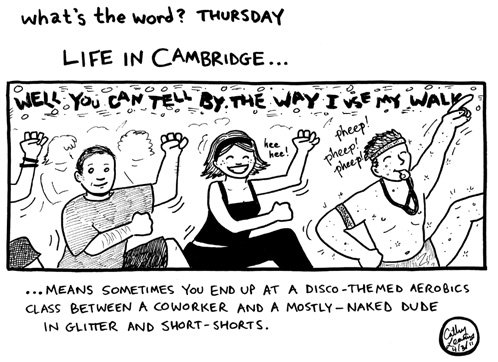 what's the word? THURSDAY
LIFE IN CAMBRIDGE...
WELL YOU CAN TELL BY THE WAY I USE MY WALK
hee
hee!
pheep!
pheep!
pheep!
...MEANS SOMETIMES YOU END UP AT A DISCO-THEMED AEROBICS
CLASS BETWEEN A COWORKER AND A MOSTLY-NAKED DUDE
IN GLITTER AND SHORT-SHORTS.
Cathy